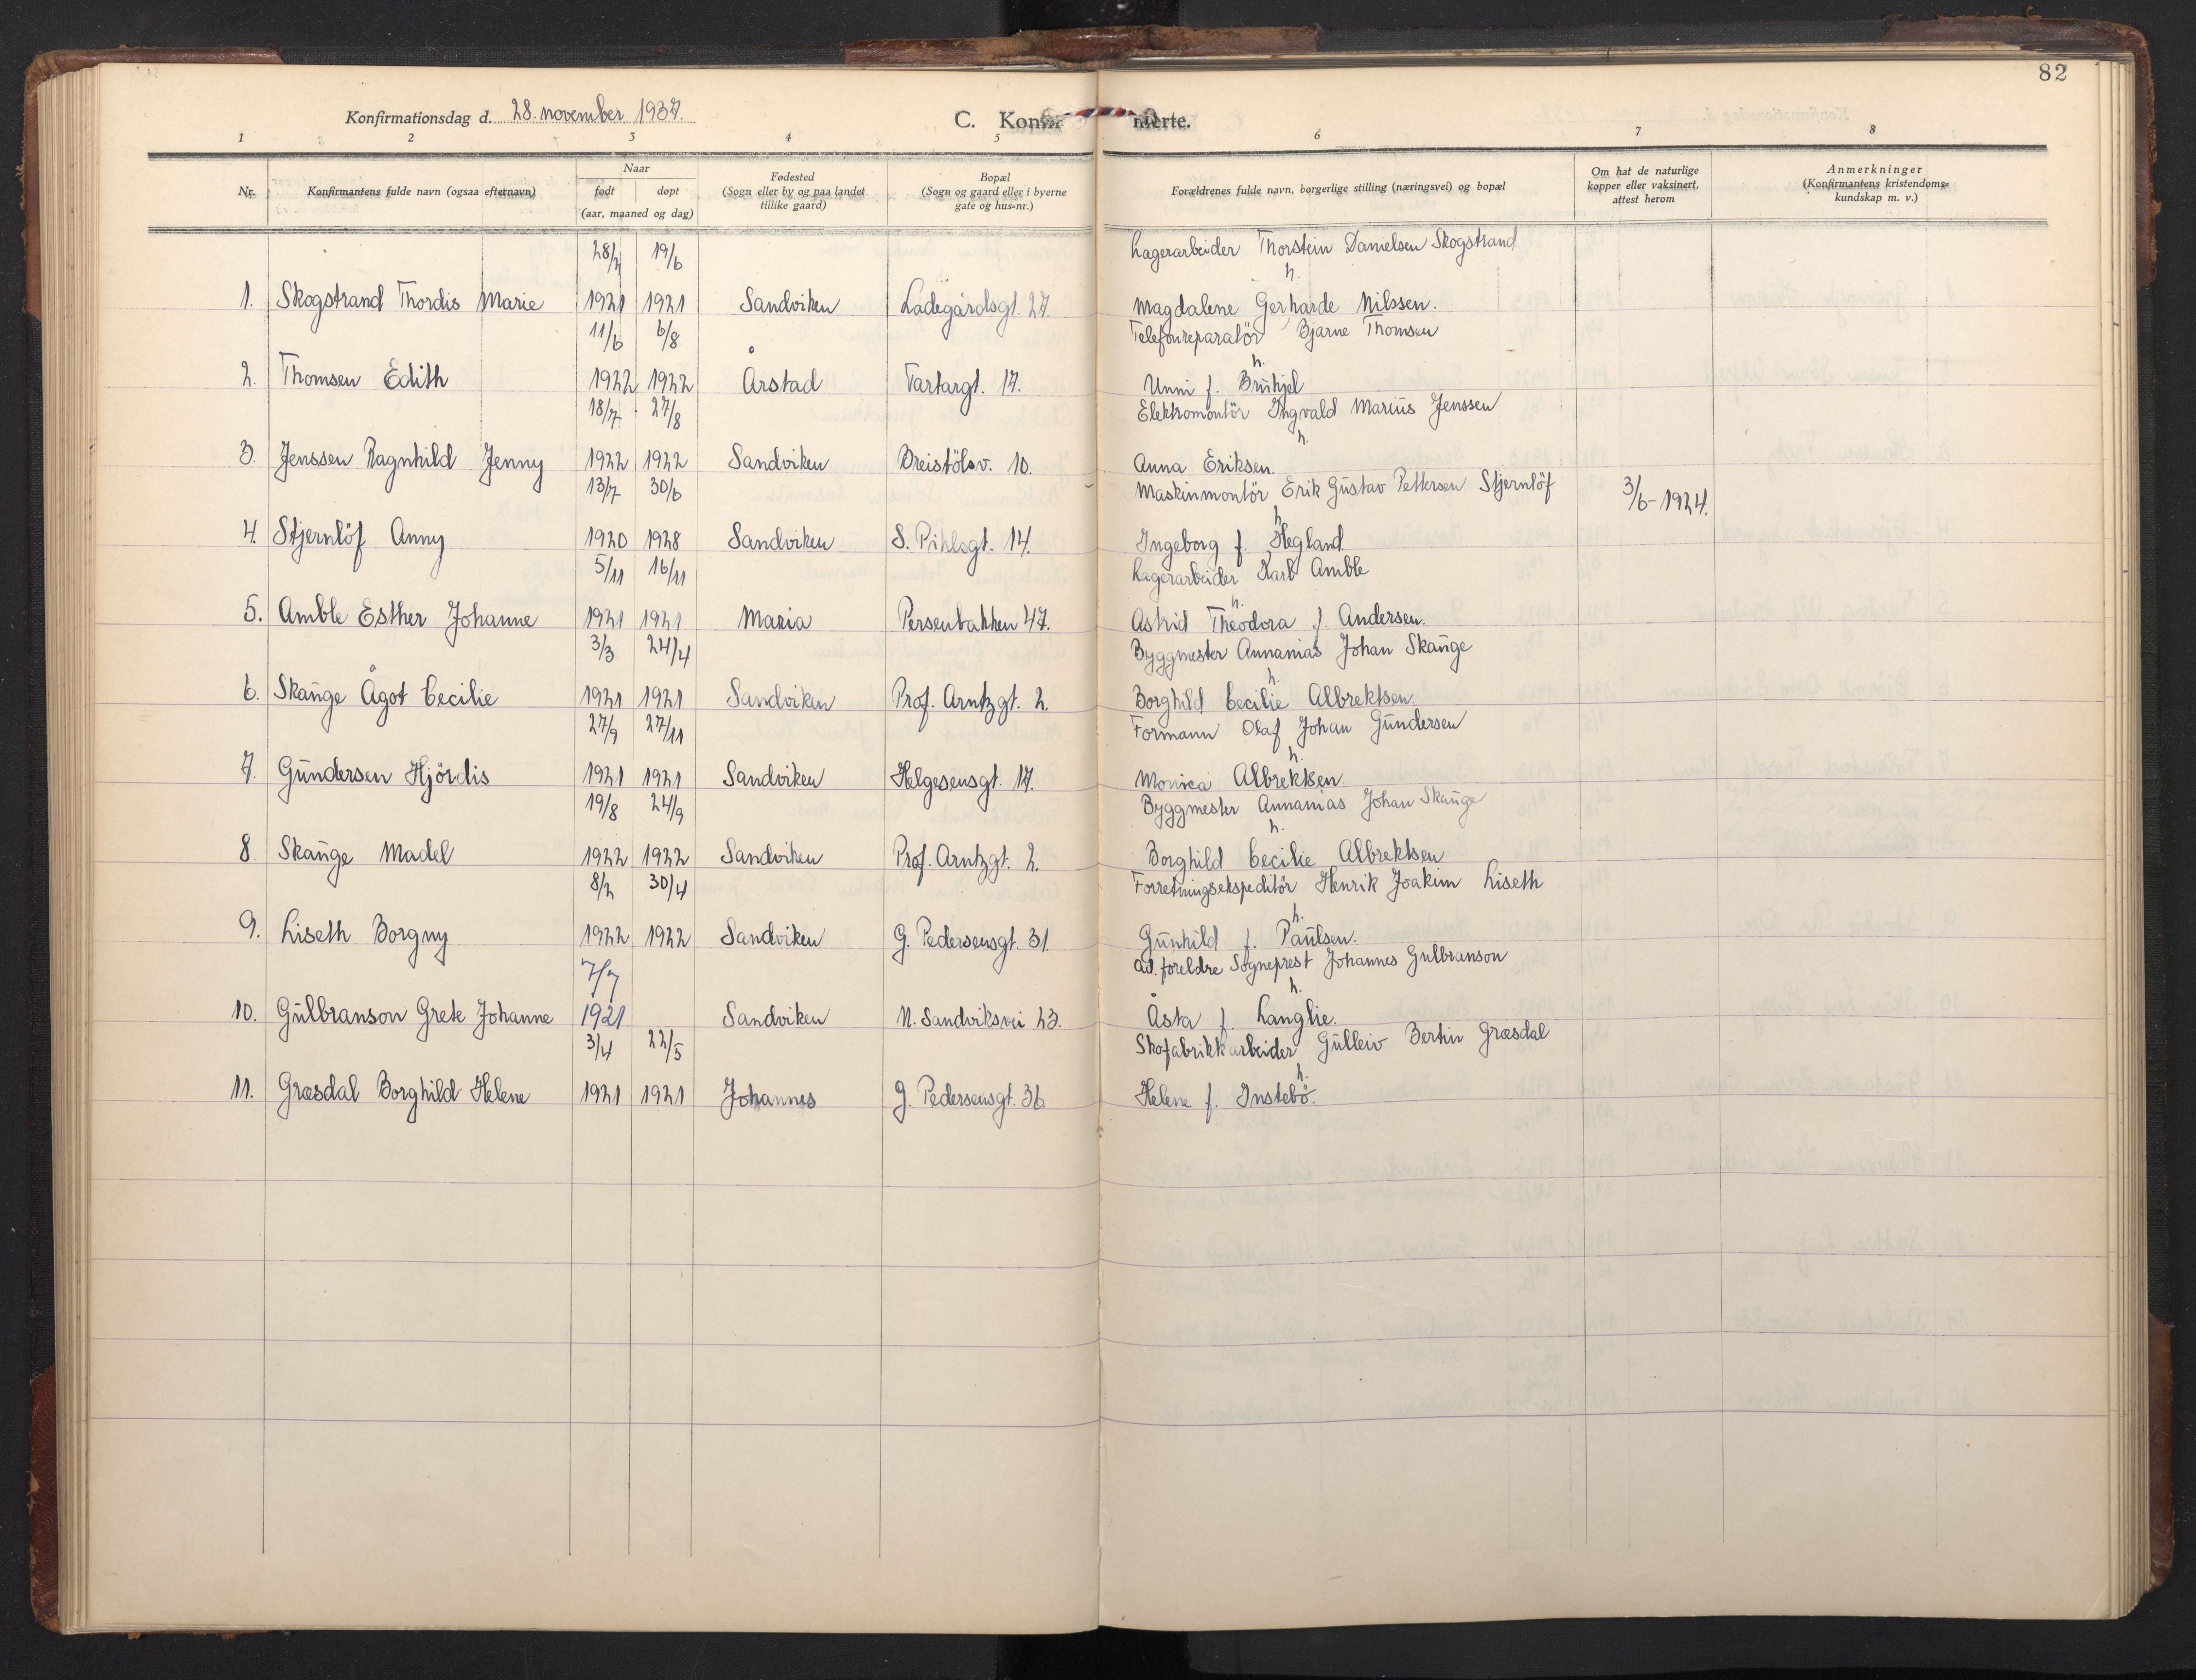 82
Konfirmationsdag d. 28. november 1937.
C. Konfirmerte.
1 2 3 4 5 6 7 8
Nr.
Konfirmantens fulde navn (ogsaa efternavn)
Naar
født døpt
(aar, maaned og dag)
Fødested
(Sogn eller by og paa landet
tillike gaard)
Bopæl
(Sogn og gaard eller i byerne
gate og hus-nr.)
Forældrenes fulde navn, borgerlige stilling (næringsvei) og bopæl
Om hat de naturlige
kopper eller vaksinert,
attest herom
Anmerkninger
(Konfirmantens kristendoms-
kundskap m. v.)
28/2 19/6 Lagerarbeider Thorstein Danielsen Skogstrand
h.
1. Skogstrand Thordis Marie 1921 1921 Sandviken Ladegårdsgt. 27. Magdalene Gerharde Nilssen.
11/6 6/8 Telefonreparatör Bjarne Thomsen
h.
2. Thomsen Edith 1922 1922 Årstad Tartargt. 17. Unni f. Bruhjel
18/7 27/8 Elektromontör Ingvald Marius Jenssen
h.
3. Jenssen Ragnhild Jenny 1922 1922 Sandviken Breistölsv. 10. Anna Eriksen.
13/7 30/6 Maskinmontör Erik Gustav Pettersen Stjernlöf 3/6-1924.
h
4. Stjernlöf Anny 1920 1928 Sandviken S. Pihlsgt. 14. Ingeborg f. Hegland
5/11 16/11 Lagerarbeider Karl Amble
h.
5. Amble Esther Johanne 1921 1921 Maria Persenbakken 47. Astrid Theodora f. Andersen.
3/3 24/4 Byggmester Annanias Johan Skauge
h.
6. Skauge Ågot Cecilie 1921 1921 Sandviken Prof. Arntzgt. 2. Borghild Cecilie Albrektsen.
27/9 27/11 Formann Olaf Johan Gundersen
h.
7. Gundersen Hjördis 1921 1921 Sandviken Helgesensgt. 17. Monica Albrektsen
19/8 24/9 Byggmester Annanias Johan Skauge
h.
8 Skauge Madel 1922 1922 Sandviken Prof. Arntzgt. 2. Borghild Cecilie Albrektsen
8/2 30/4 Forretningsekspeditör Henrik Joakim Liseth
h.
9. Liseth Borgny 1922 1922 Sandviken G. Pedersensgt. 31. Gunhild f. Paulsen.
7/7 ad. foreldre Sogneprest Johannes Gulbranson
h.
10. Gulbranson Grete Johanne 1921 Sandviken N. Sandviksvei 23. Åsta f. Langlie.
3/4 22/5 Skofabrikkarbeider Gulleiv Bertin Græsdal
h.
11. Græsdal Borghild Helene 1921 1921 Johannes G. Pedersensgt. 36. Helene f. Instebö.